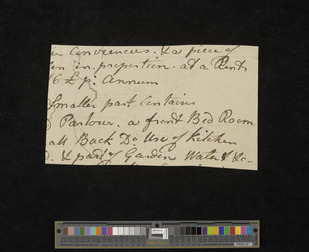 Conveniences. & a piece of
in. proportion. at a Rent
6 £ pr. Annum
Smaller part Contains
Parlour. a front Bed Room
all Back Do Use of Kitchen
& part of Garden Water & &c-